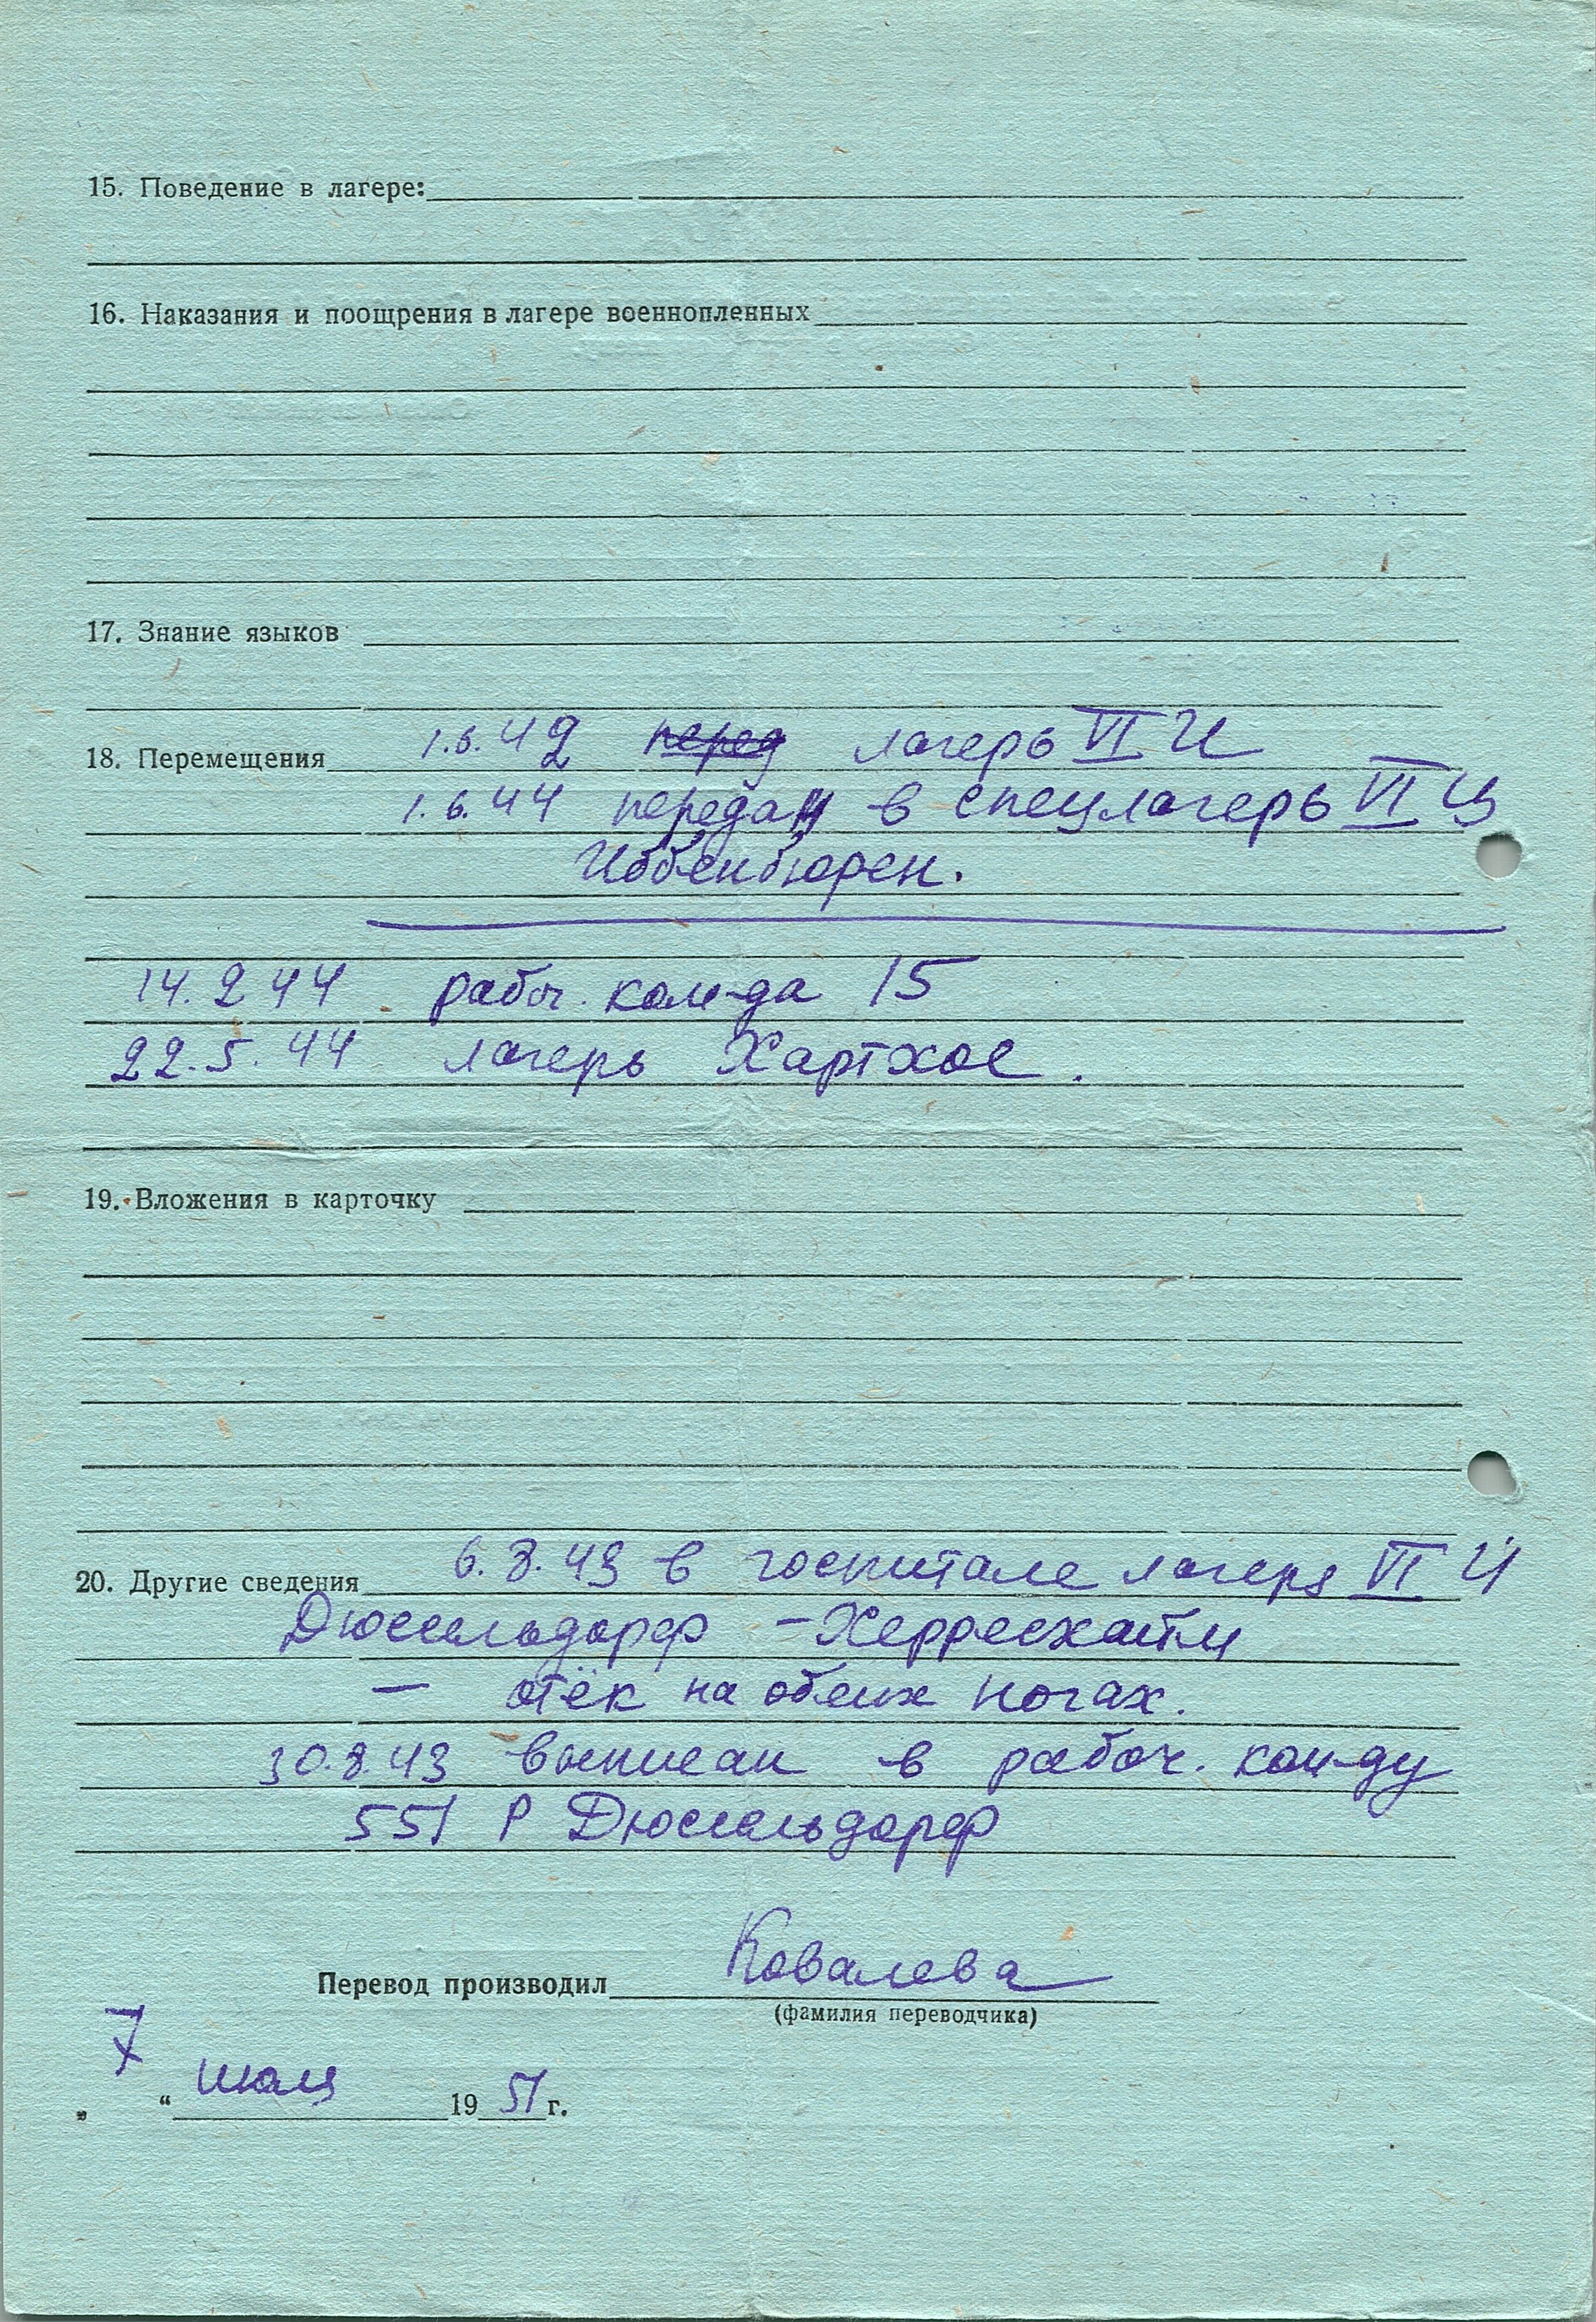 15. Поведение в лагере:
16. Наказания и поощрения в лагере военнопленных
17. Знание языков
18. Перемещения 1.6.42 перед лагерь VI И
1.6.44 передан в спецлагерь VI Ц
Иббенбюрен.
14.2 44 рабоч. ком-да 15
22.5.44 лагерь Хартхое.
19. Вложения в карточку
20. Другие сведения 6.8.43 в госпитале лагеря VI
Дюссельдорф - Херресхайм
- отёк на обеих ногах.
30.8.43 выписан в рабоч. ком-ду
551 Р Дюссельдорф
Перевод производил Ковалева
(фамилия переводчика)
„ 7 “ июля 19 51 г.